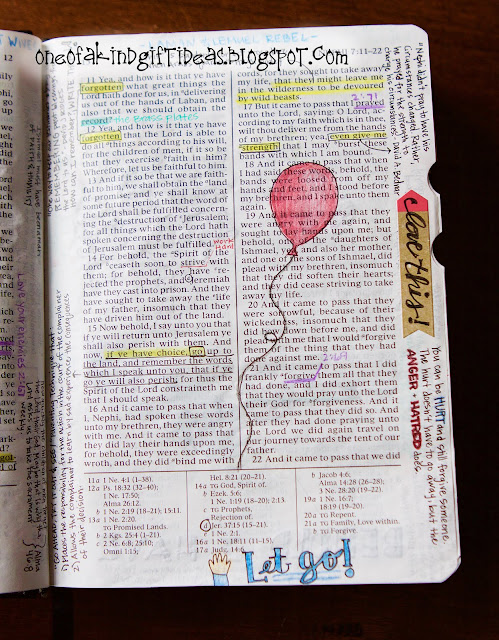 oneofakindgiftideas.blogspot.com
7:11–22
11 Yea, and how is it that we have
forgotten what great things the
Lord hath done for us, in delivering
us out of the hands of Laban, and
also that we should obtain the
record? the Brass plates
12 Yea, and how is it that we have
forgotten that the Lord is able to
do all things according to his will,
for the children of men, if it so be
that they exercise faith in him?
Wherefore, let us be faithful to him.
13 And if it so be that we are faith-
ful to him, we shall obtain the land
of promise; and ye shall know at
some future period that the word of
the Lord shall be fulfilled concern-
ing the destruction of Jerusalem;
for all things which the Lord hath
spoken concerning the destruction
of Jerusalem must be fulfilled.
work
Hard
14 For behold, the Spirit of the
Lord ceaseth soon to strive with
them; for behold, they have re-
jected the prophets, and Jeremiah
have they cast into prison. And they
have sought to take away the life
of my father, insomuch that they
have driven him out of the land.
15 Now behold, I say unto you that
if ye will return unto Jerusalem ye
shall also perish with them. And
now, if ye have choice, go up to
the land, and remember the words
which I speak unto you, that if ye
go ye will also perish; for thus the
Spirit of the Lord constraineth me
that I should speak.
16 And it came to pass that when
I, Nephi, had spoken these words
unto my brethren, they were angry
with me. And it came to pass that
they did lay their hands upon me,
for behold, they were exceedingly
wroth, and they did bind me with
cords, for they sought to take away
my life, that they might leave me
in the wilderness to be devoured
by wild beasts.
2:71
17 But it came to pass that I prayed
unto the Lord, saying: O Lord, ac-
cording to my faith which is in thee,
wilt thou deliver me from the hands
of my brethren; yea, even give me
strength that I may burst these
bands with which I am bound.
18 And it came to pass that when
I had said these words, behold, the
bands were loosed from off my
hands and feet, and I stood before
my brethren, and I spake unto them
again.
19 And it came to pass that they
were angry with me again, and
sought to lay hands upon me; but
behold, one of the daughters of
Ishmael, yea, and also her mother,
and one of the sons of Ishmael, did
plead with my brethren, insomuch
that they did soften their hearts;
and they did cease striving to take
away my life.
20 And it came to pass that they
were sorrowful, because of their
wickedness, insomuch that they
did bow down before me, and did
plead with me that I would forgive
them of the thing that they had
done against me. 2:69
21 And it came to pass that I did
frankly forgive them all that they
had done, and I did exhort them
that they would pray unto the Lord
their God for forgiveness. And it
came to pass that they did so. And
after they had done praying unto
the Lord we did again travel on
our journey towards the tent of our
father.
22 And it came to pass that we did
"Nephi didn't pray to have his
circumstance changed. Rather,
he prayed for the strength to
change his circumstances." David A. Bednar
i love this!
You can be HURT and still forgive someone
The hurt doesn't have to go away, but the
ANGER + HATRED does.
11a 1 Ne. 4:1 (1–38).
12a Ps. 18:32 (32–40);
1 Ne. 17:50;
Alma 26:12.
b 1 Ne. 2:9 (18–21); 15:11.
13a 1 Ne. 2:20.
TG Promised Lands.
b 2 Kgs. 25:4 (1–21).
c 1 Ne. 6:8; 25:10;
Omni 1:15;
Hel. 8:21 (20–21).
14a TG God, Spirit of.
b Ezek. 5:6;
1 Ne. 1:19 (18–20); 2:13.
c TG Prophets,
Rejection of.
d Jer. 37:15 (15–21).
e 1 Ne. 2:1.
16a 1 Ne. 18:11 (11–15).
17a Judg. 14:6.
b Jacob 4:6;
Alma 14:28 (26–28);
3 Ne. 28:20 (19–22).
19a 1 Ne. 16:7;
18:19 (19–20).
20a TG Repent.
21a TG Family, Love within.
b TG Forgive.
Let go!